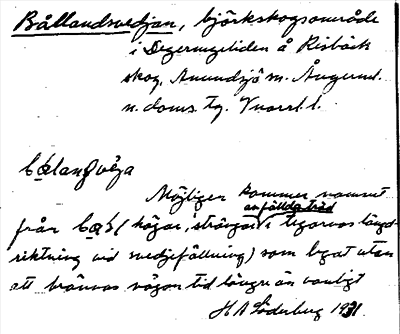 Bållandsvedjan, björkskogsområde
i Degermyrliden å Risbäck
skog, Anundsjö sn. Ångerml.
n. doms. tg. Vnorrl. l.
Möjligen kommer namnet
av fällda träd
från (högar, strängar i tegarnas längd-
riktning vid svedjefällning) som legat utan
att brännas någon tid längre än vanligt
H A Söderberg 1931.